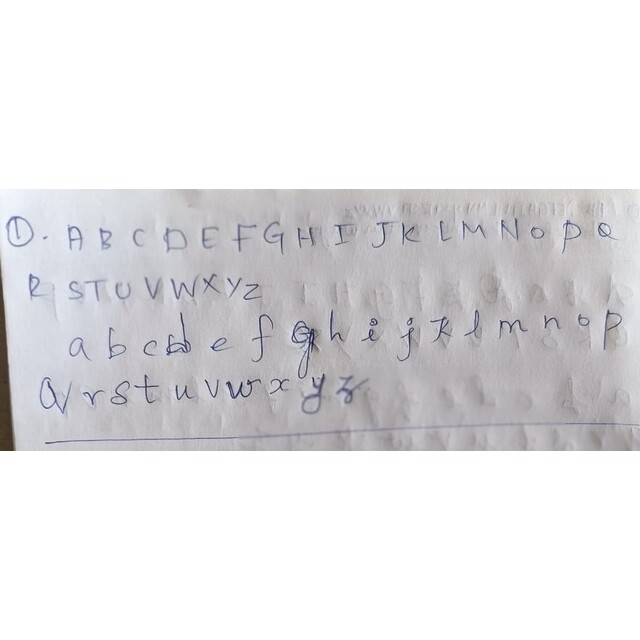 ①. A B C D E F G H I J K L M N O P Q
R S T U V W X Y Z
a b c d e f g h i j k l m n o p
q r s t u v w x y z